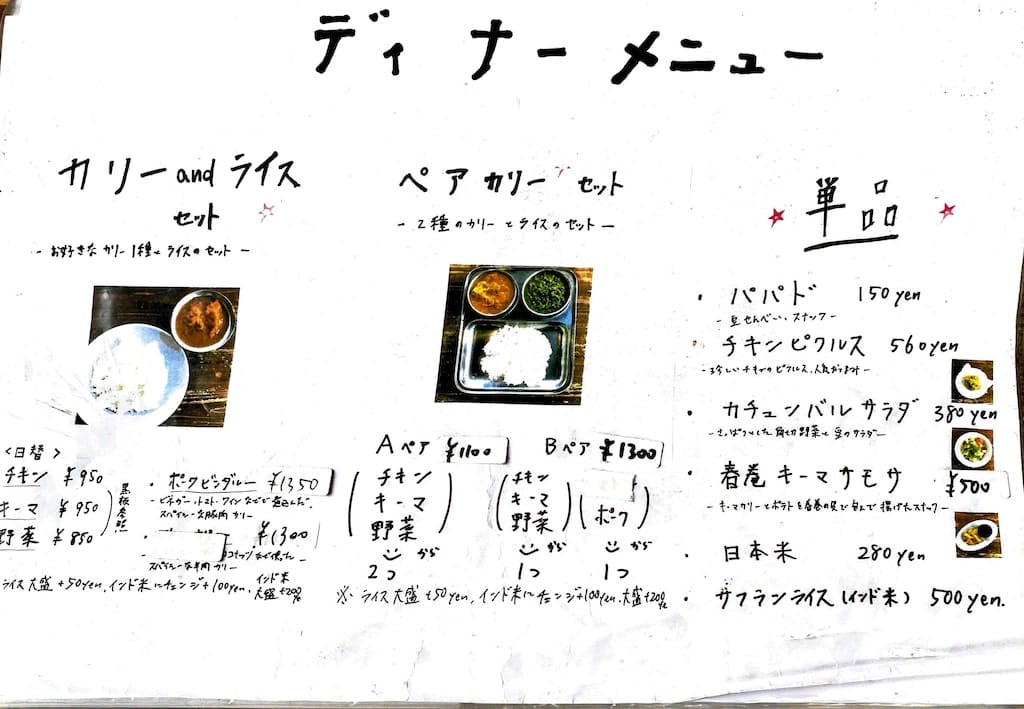 ディナーメニュー
カリー and ライス
セット
- お好きなカリー1種とライスのセット -
<日替>
チキン ¥950
キーマ ¥950
野菜 ¥850
黒板参照
・ポークビンダルー ¥1350
- ビネガー、トマト、ワインなどで煮込んだ
スパイシーな豚肉カリー
¥1300
ココナッツなど使った
スパイシーな牛肉カリー
ライス大盛+50yen、インド米にチェンジ+100yen、インド米大盛+200
ペアカリーセット
- 2種のカリーとライスのセット -
Aペア ¥1100
チキン
キーマ
野菜
から
2つ
Bペア ¥1300
チキン
キーマ
野菜
から
1つ
ポーク
から
1つ
※ライス大盛+50yen、インド米にチェンジ+100yen、大盛+200
単品
・パパド 150yen
- 豆せんべい、スナック -
チキンピクルス 560yen
- 珍しいチキンのピクルス、人気あります -
・カチュンバルサラダ 380yen
- さっぱりとした角切野菜と豆のサラダ -
・春巻キーマサモサ ¥500
- キーマカリーとポテトを春巻の皮で包んで揚げたスナック -
・日本米 280yen
・サフランライス(インド米) 500yen.